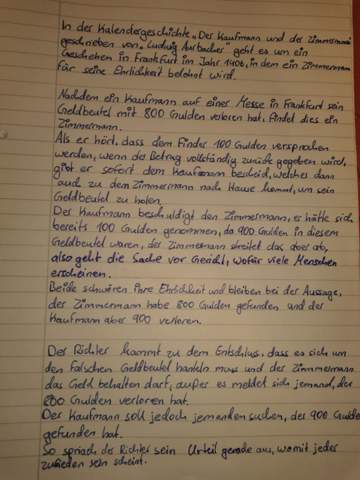 In der Kalendergeschichte „Der Kaufmann und der Zimmermann
geschrieben von „Ludwig Aurbacher" geht es um ein
Geschehen in Frankfurt im Jahr 1406, in dem ein Zimmermann
für seine Ehrlichkeit belohnt wird.
Nachdem ein Kaufmann auf einer Messe in Frankfurt sein
Geldbeutel mit 800 Gulden verloren hat, findet dies ein
Zimmermann.
Als er hört, dass dem Finder 100 Gulden versprochen
werden, wenn der Betrag vollständig zurück gegeben wird,
gibt er sofort dem Kaufmann bescheid, welches dann
auch zu den Zimmermann nach Hause kommt, um sein
Geldbeutel zu holen.
Der Kaufmann beschuldigt den Zimmermann, er hätte sich
bereits 100 Gulden genommen, da 900 Gulden in diesem
Geldbeutel waren, der Zimmermann streitet das aber ab,
also geht die Sache vor Gericht, wofür viele Menschen
erscheinen.
Beide schwören ihre Ehrlichkeit und bleiben bei der Aussage,
der Zimmermann habe 800 Gulden gefunden und der
Kaufmann aber 900 verloren.
Der Richter kommt zu dem Entschluss, dass es sich um
den falschen Geldbeutel handeln muss und der Zimmermann
das Geld behalten darf, außer es meldet sich jemand, der
800 Gulden verloren hat.
Der Kaufmann soll jedoch jemanden suchen, der 900 Gulden
gefunden hat.
So sprach der Richter sein Urteil gerade aus, womit jeder
zufrieden sein scheint.